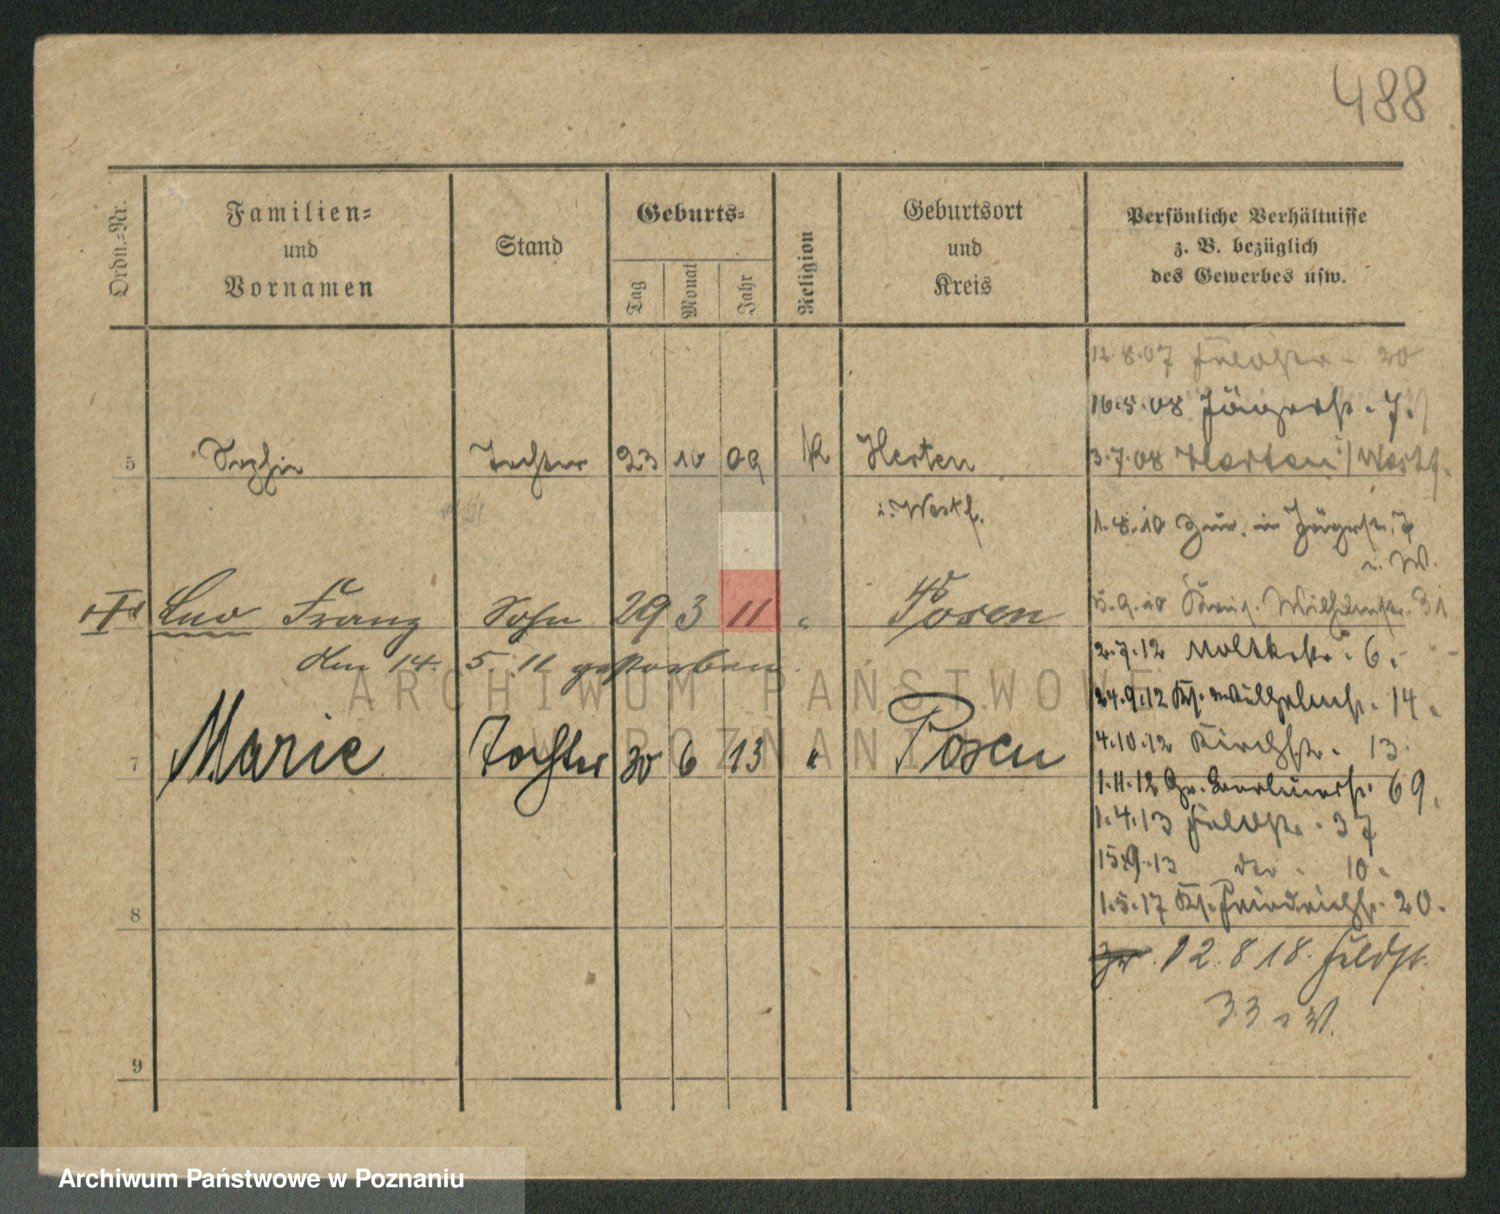 488
Ordn.-Nr.
Familien-
und
Vornamen
Stand
Geburts-
Tag
Monat
Jahr
Religion
Geburtsort
und
Kreis
Persönliche Verhältnisse
z. B. bezüglich
des Gewerbes usw.
12.8.07 Feldstr. 20
16.5.08 Jägerstr. 7.
5 Sophie Tochter 23 10 09 k Herten
3.7.08 Herten i/Westf.
i. Westf.
1.8.10 Zur. in Jägerstr. 7
u. W.
Franz Sohn 29 3 11 " Posen
5.9.10 Wilhelmstr. 31
den 14. 5. 11 gestorben.
2.7.12 Moltkestr. 6.
24.9.12 Kl. Wilhelmstr. 14.
4.10.12 Kirchstr. 13
7 Marie Tochter 30 6 13 " Posen
1.11.12 Gr. Berlinerstr. 69.
1.4.13 Feldstr. 37
15.9.13 10.
8
1.5.17 Kl. Friedrichstr. 20.
12.8.18. Feldst.
33 u W.
9
ARCHIWUM PAŃSTWOWE
W POZNANIU
Archiwum Państwowe w Poznaniu